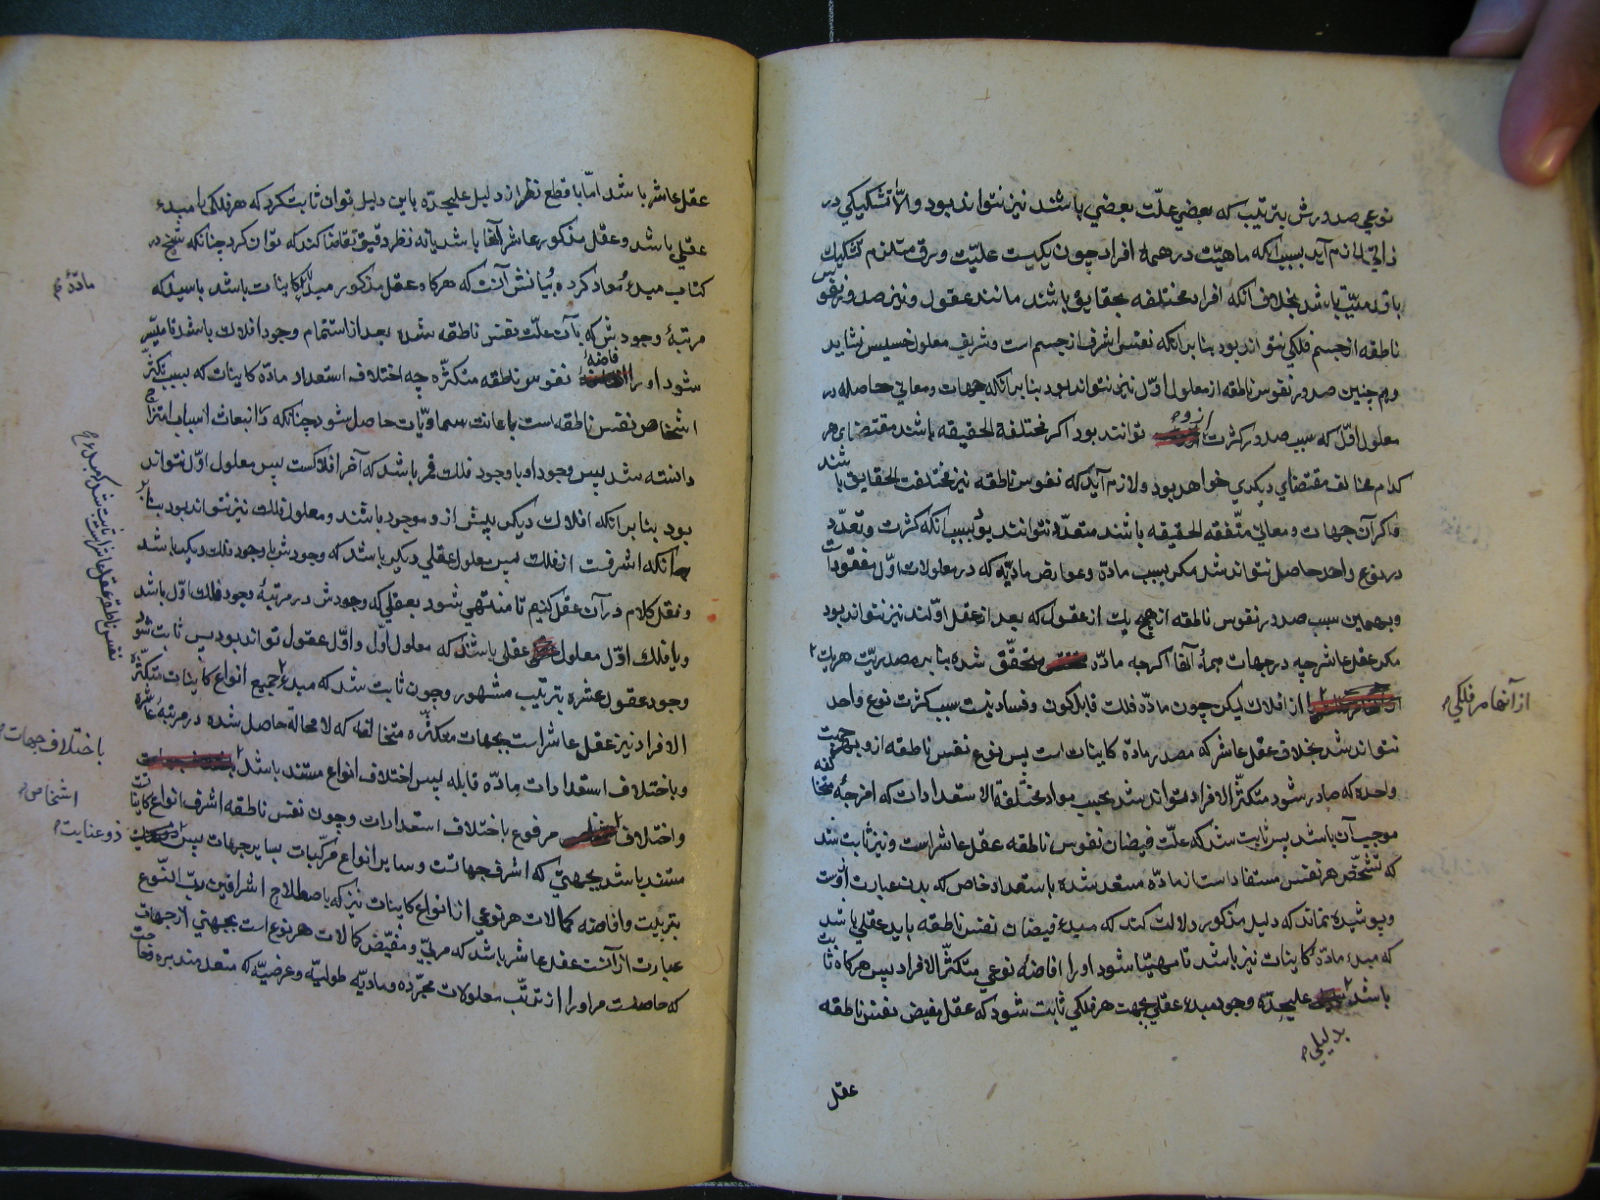 نوعی صدورش بترتیب که بعضی علّت بعضی باشند نیز نتواند بود والّا تشکیکی در
ذاتی لازم آید بسبب آنکه ماهیّت در همهٔ افراد چون یکیست علیّت و
باشد بخلاف آنکه افراد مختلفه بحقایق باشند مانند عقول و نیز صدور نفوس
ناطقه از جسم فلکی نتواند بود بنا بر آنکه نفس اشرف از جسم است و شریف معلول خسیس نشاید
و همچنین صدور نفوس ناطقه از معلول اوّل نیز نتواند بود بنا بر آنکه جهات و معانی حاصله در
معلول اوّل که سبب صدور کثرت ازو توانند بود اگر مختلفة الحقیقه باشند مقتضای هر
کدام مخالف مقتضای دیگری خواهد بود و لازم آید که نفوس ناطقه نیز مختلفت الحقایق باشند
و اگر آن جهات و معانی متّفقه الحقیقه باشند متعدّد نتوانند بود بسبب آنکه کثرت و تعدّد
در نوع واحد حاصل نتواند شد مگر بسبب مادّه و عوارض مادیّه که در معلولات اوّل مفقود است
و بهمین سبب صدور نفوس ناطقه از هیچ یک از عقول که بعد از عقل اوّلند نیز نتواند بود
مگر عقل عاشر چه در جهات همهٔ آنها اگرچه مادّه متحقّق شده بنا بر مصدریّت هر یک
از افلاک لیکن چون مادّه فلک قابل کون و فساد نیست سبب کثرت نوع واحد
نتواند شد بخلاف عقل عاشر که مصدر مادّه کاینات است پس نوع نفس ناطقه ازو بجهت
واحده که صادر شود متکثّر الافراد تواند شد بحسب مواد مختلفة الاستعدادات که امزجهٔ متخالفه
موجب آن باشد پس ثابت شد که علّت فیضان نفوس ناطقه عقل عاشر است و نیز ثابت شد
که تشخّص هر نفس مستفاد است از مادّه مستعد شده باستعداد خاص که بدن عبارت از وست
و پوشیده نماند که دلیل مذکور دلالت کند که مبدء فیضان نفس ناطقه باید عقلی باشد
که مبدء مادّه کاینات نیز باشد تا مهیّا شود او را افاضهٔ نوعی متکثّر الافراد پس هرگاه ثابت
باشد علیحدّه وجود مبدء عقلی بجهت هر فلکی ثابت شود که عقل مفیض نفس ناطقه
بدلیلی
عقل
از آنها مر فلکی
عقل عاشر باشد امّا با قطع نظر از دلیل علیحدّه باین دلیل توان ثابت کرد که هر فلکی را مبدء
عقلی باشد و عقل مذکور عاشر آنها باشد یا نه نظر دقیق تقاضا کند که توان کرد چنانکه شیخ در
کتاب مبدء و معاد کرده و بیانش آنست که هرگاه عقل مذکور مبدء کاینات باشد باسید که
مرتبهٔ وجودش که بآن علّت نفس ناطقه شده بعد از استتمام وجود افلاک باشد تا میسّر
شود او را افاضهٔ نفوس ناطقه متکثّره چه اختلاف استعداد مادّه کاینات که سبب تکثّر
اشخاص نفس ناطقه است باعانت سماویّات حاصل شود چنانکه در انبعاث اسباب امتزاج
دانسته شد پس وجود او با وجود فلک قمر باشد که آخر افلاکست پس معلول اوّل نتواند
بود بنا بر آنکه افلاک دیگر پیش ازو موجود باشند و معلول فلک نیز نتواند بود
آنکه اشرفست از فلک پس معلول عقلی دیگر باشد که وجودش با وجود فلک دیگر باشد
و نقل کلام در آن عقل کنیم تا منتهی شود بعقلی که وجودش در مرتبهٔ وجود فلک اوّل باشد
و با فلک اوّل معلول عقلی باشد که معلول اوّل و اوّل عقول تواند بود پس ثابت شود
وجود عقول عشره بترتیب مشهور و چون ثابت شد که مبدء جمیع انواع کاینات متکثّرة
الافراد نیز عقل عاشر است بجهات متکثّره متخالفه که لا محاله حاصل شده در مرتبهٔ عاشره
و باختلاف استعدادات مادّه قابله پس اختلاف انواع مستند باشد
و اختلاف مرفوع باختلاف استعدادات و چون نفس ناطقه اشرف انواع کاینات
مستند باشد بجهتی که اشرف جهاتست و سایر انواع مرکّبات بسایر جهات پس
بتربیت و افاضه کمالات هر نوعی از انواع کاینات نیز که باصطلاح اشراقین ربّ النّوع
عبارت از آنست عقل عاشر باشد که مربّی و مفیض کمالات هر نوع است بجهتی از جهات
که حاصلست مر او را از ترتّب معلولات مجرّده و مادیّه طولیّه و عرضیّه که متعدّد
مادّهٔ
نفس ناطقه عقل عاشر است ثابت شد که مبدء
باختلاف جهات
اشخاص
ذو عنایت